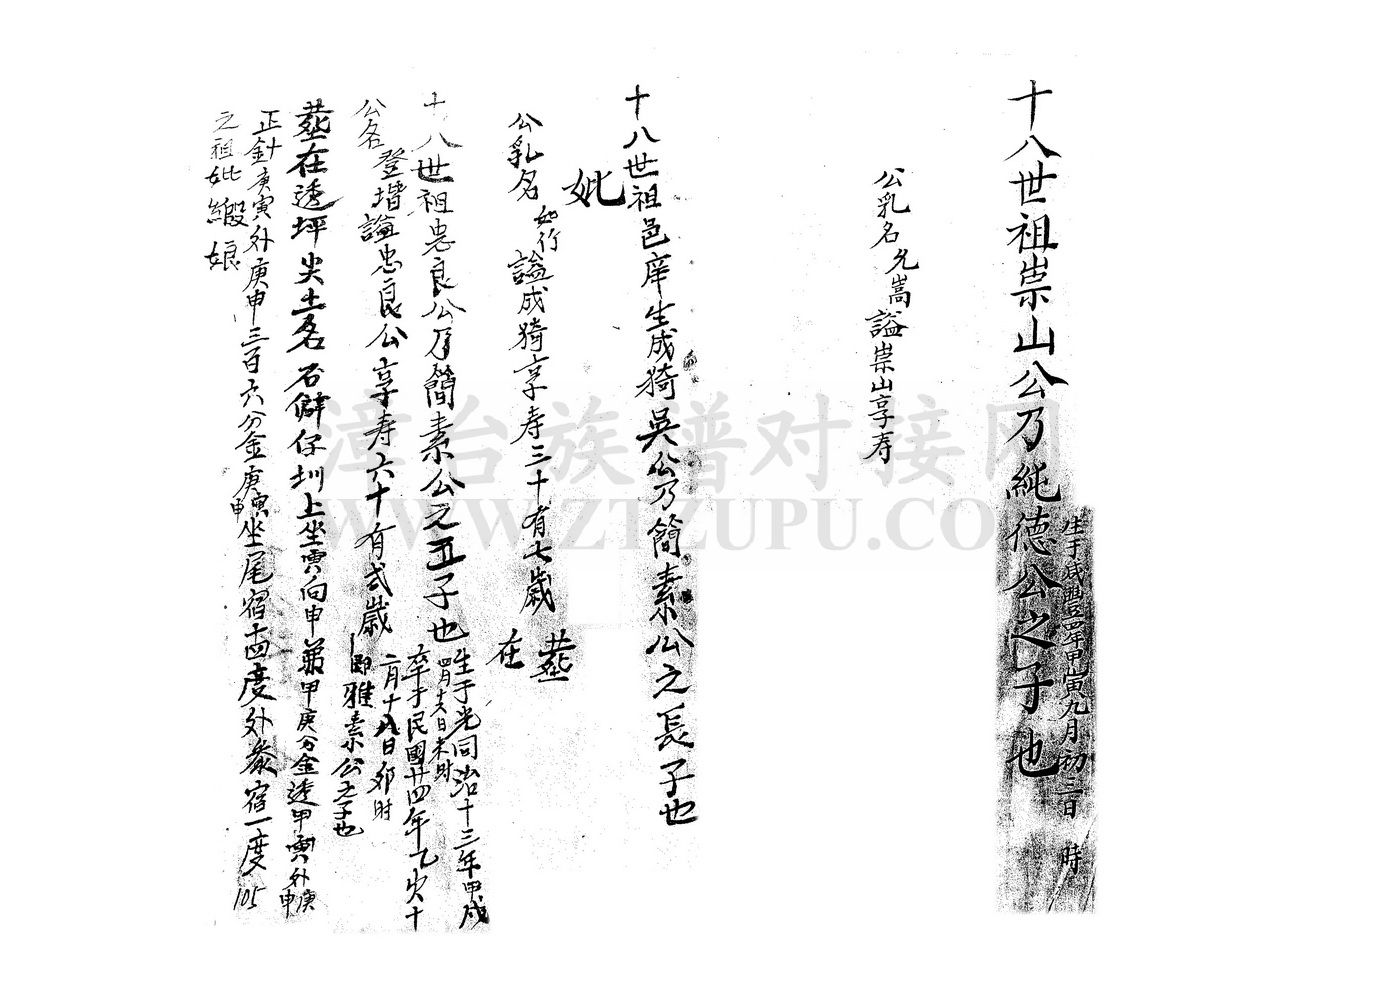 十八世祖崇山公乃純德公之子也
生于咸豐四年甲寅九月初三日 時
公乳名允嵩謚崇山享寿
十八世祖邑庠生成猗吳公乃簡素公之長子也
妣
公乳名如行謚成猗享寿三十有七歲
塟在
十八世祖忠良公乃簡素公之五子也
生于光同治十三年甲戌
四月廿六日未时
卒于民國廿四年乙亥十
二月十八日卯时
公名登堦謚忠良公享寿六十有弍歲
即雅素公之子也
塟在透坪尖土名石僻仔圳上坐寅向申兼甲庚分金透甲寅外庚申
正針庚寅外庚申三百六分金庚寅庚申坐尾宿十四度外參宿一度
之祖妣緞娘
105
漳台族谱对接网
WWW.ZTZUPU.COM